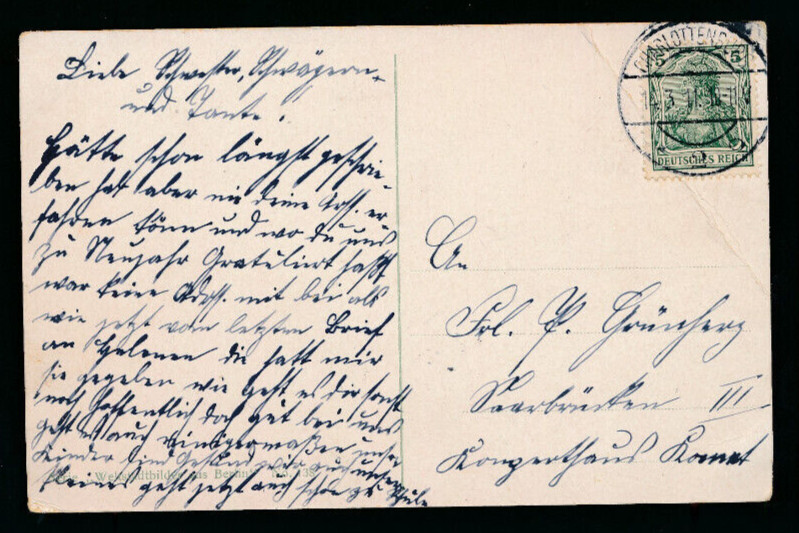 Liebe Schwester, Schwägerin
und Tante!
Hätte schon längst geschrie-
ben hat aber nie deine Adss. er
fahren könn und wo du uns
zu Neujahr Gratuliert hast
war keine Adss. mit bei als
wie jetzt vom letzten Brief
an Helenen die hatt mir
sie gegeben wie geht es dir sonst
noch hoffentlich doch gut bei uns
geht es auch einigermaßen unsre
Kinder sind Gesund und unser
kleines geht jetzt auch schon zu Schule
"Weltstadtbilder aus Berlin"
CHARLOTTENB
5
DEUTSCHES REICH
An
Frl. P. Grünberg
Saarbrücken III
Konzerthaus Komet